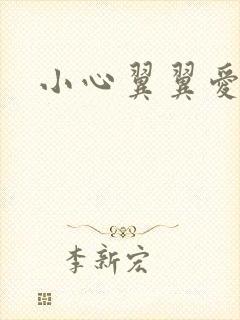 小心翼翼愛
李新宏